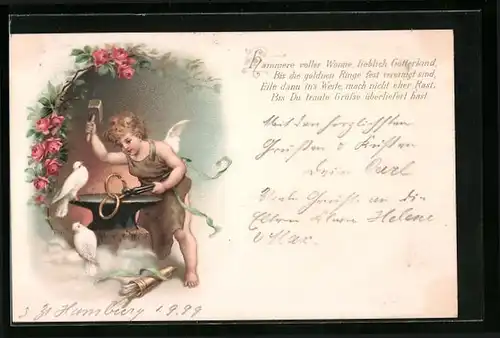 Hämmere voller Wonne, lieblich Götterkind,
Bis die goldnen Ringe fest vereinigt sind,
Eile dann in's Weite, mach nicht eher Rast,
Bis Du traute Grüsse überliefert hast.
Mit den herzlichsten
Grüßen & Küssen
Dein Carl
Viele Grüße an die
Eltern Helene
& Max.
Hamburg 1.9.99